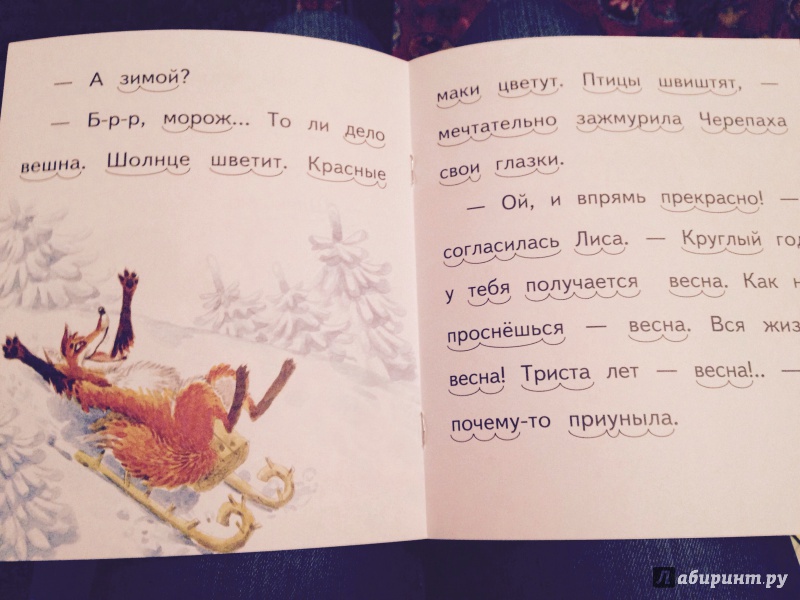 — А зимой?
— Б-р-р, морож... То ли дело
вешна. Шолнце шветит. Красные
маки цветут. Птицы швиштят, —
мечтательно зажмурила Черепаха
свои глазки.
— Ой, и впрямь прекрасно! —
согласилась Лиса. — Круглый го
у тебя получается весна. Как н
проснёшься — весна. Вся жиз
весна! Триста лет — весна!.. —
почему-то приуныла.
Лабиринт.ру